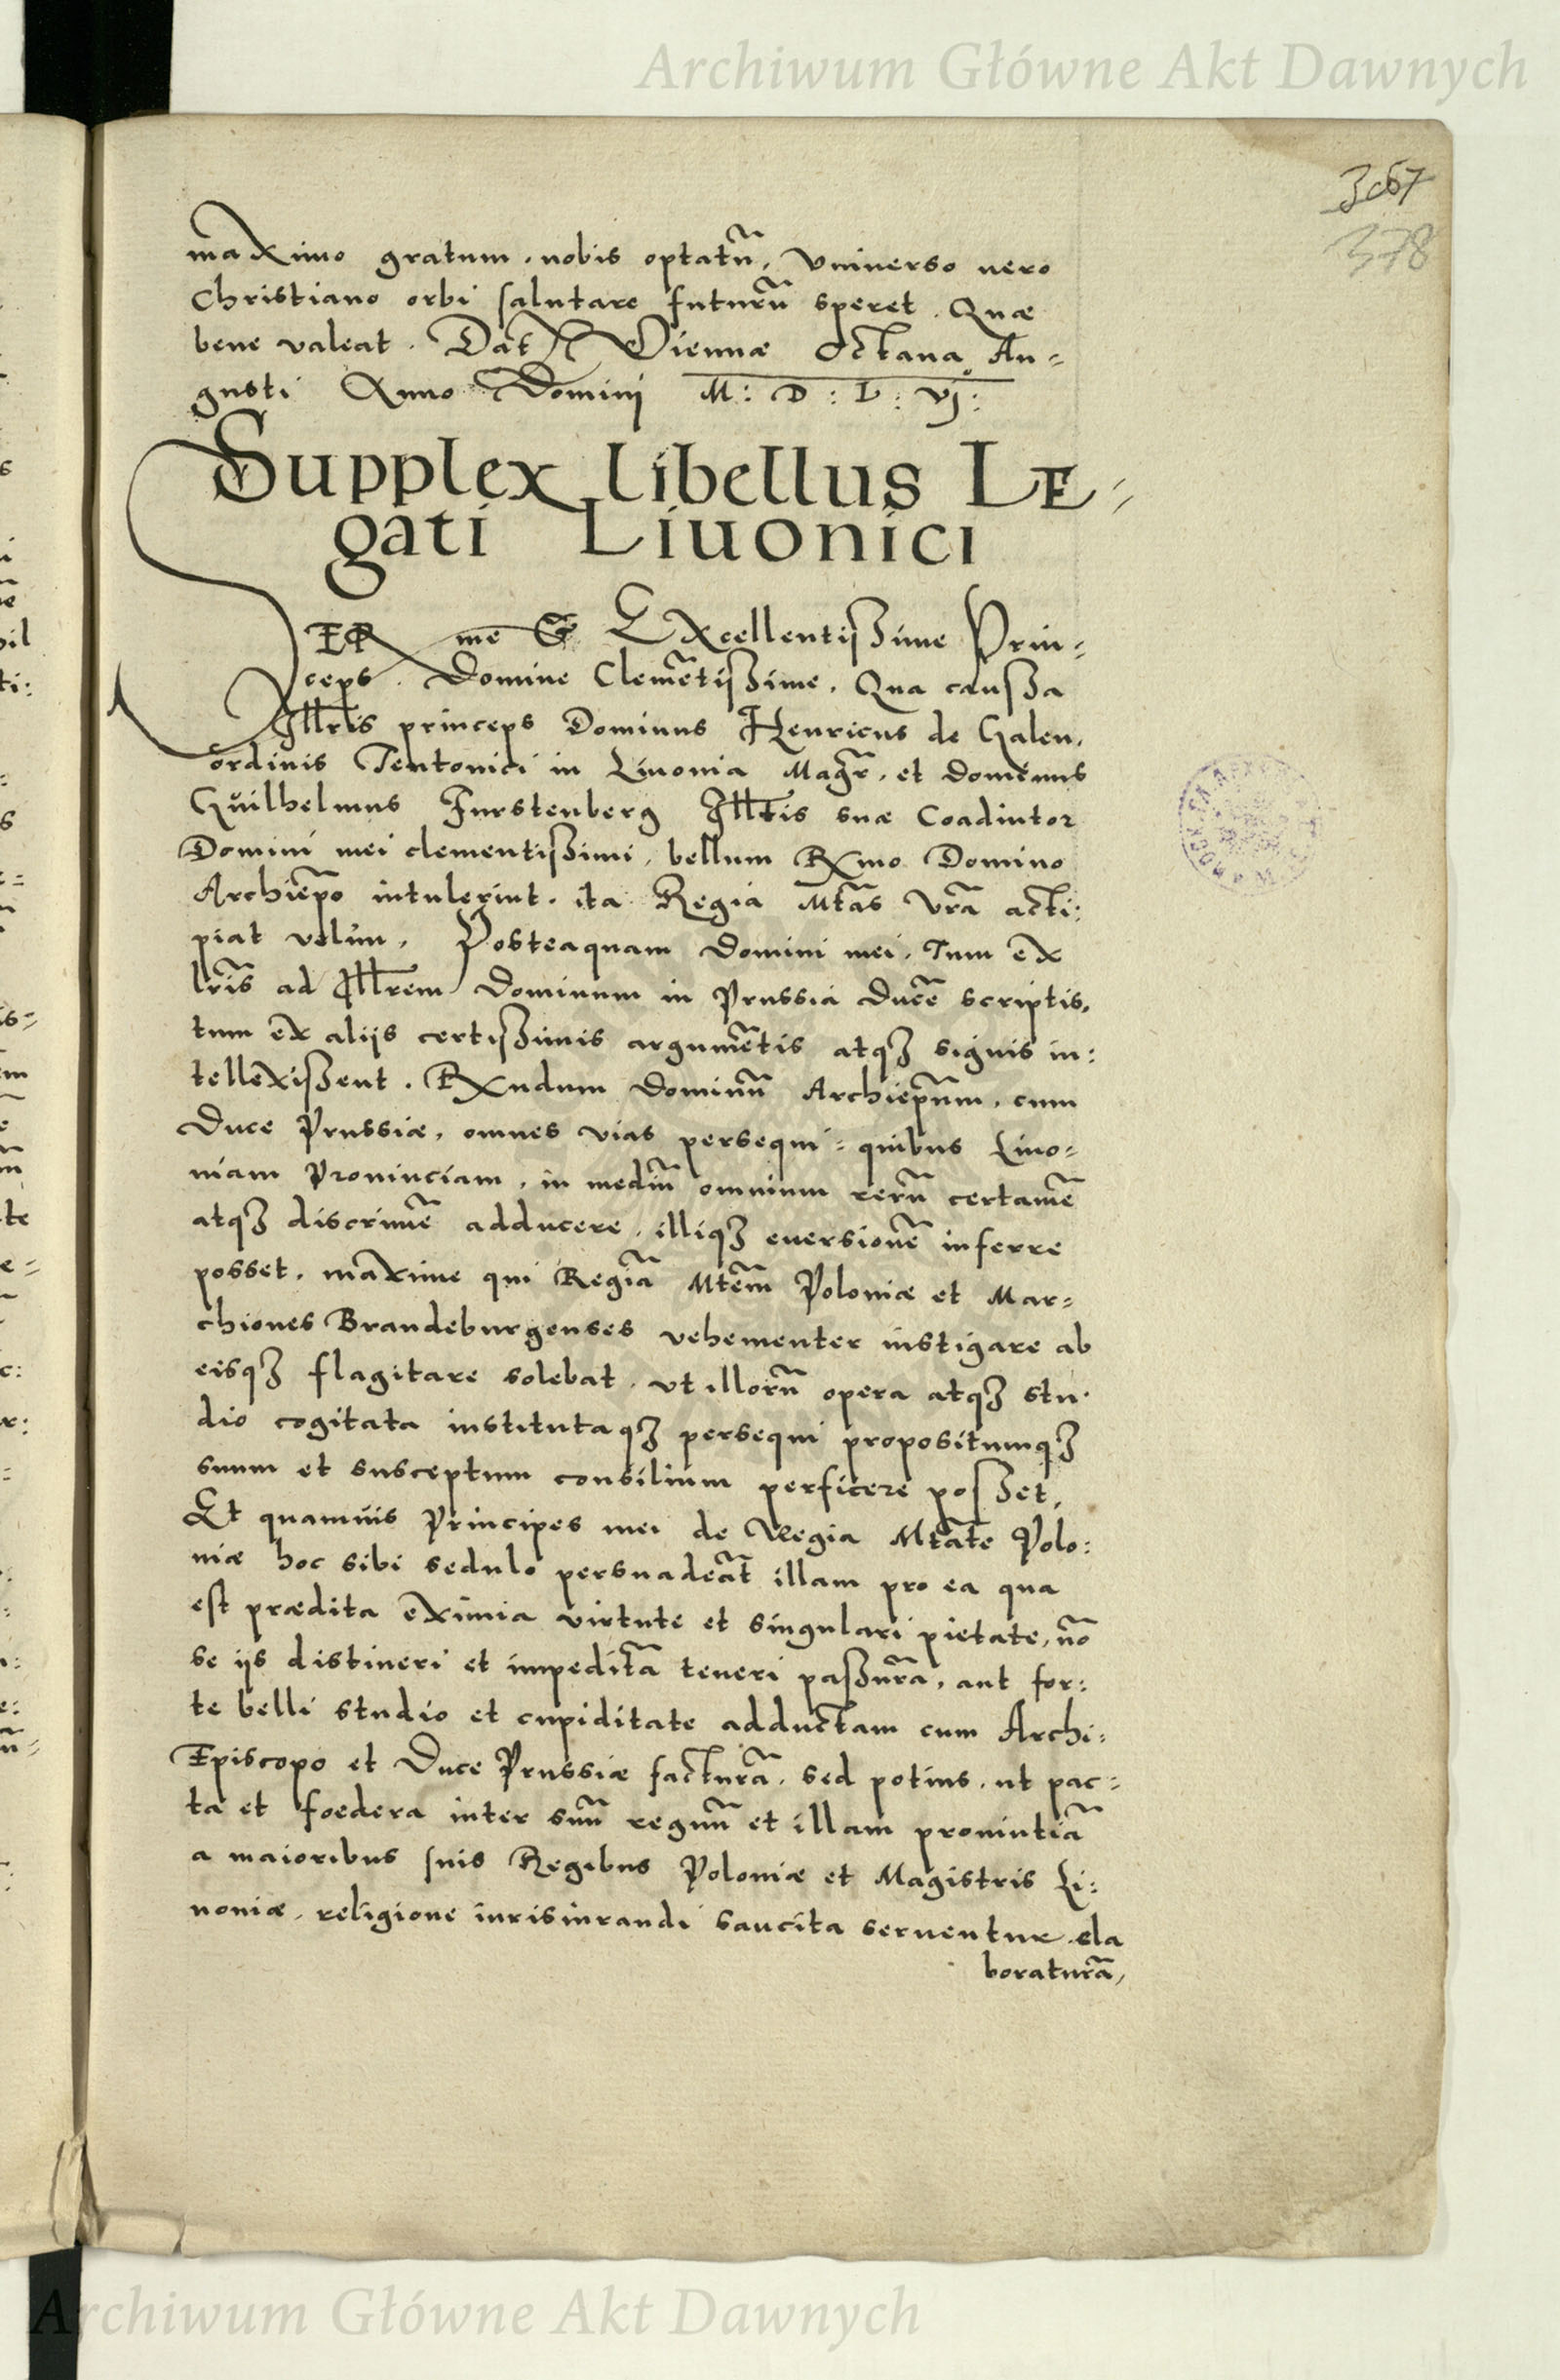 Archiwum Główne Akt Dawnych
3067
378
maximo gratum, nobis optatũ, Vniuerso uero
Christiano orbi salutare futurũ speret. Quæ
bene valeat. Dat Viennæ Octaua Au=
gusti Anno Domini M: D: L: vj:
Supplex libellus LE=
gati Liuonici
SER me & Excellentißime Prin=
ceps. Domine Clemẽtißime. Qua caußa
Illtris princeps Dominus Henricus de Galen,
ordinis Teutonici in Liuonia Magr̃. et dominus
Guilhelmus Furstenberg Illtis suæ Coadiutor
Domini mei clementißimi, bellum Rxmo Domino
Archiep̃o intulerint. ita Regia Mtãs Vr̃a acti:
piat velim. Posteaquam Domini mei. Tum ex
lr̃is ad Illrem Dominum in Prussia Ducẽ scriptis,
tum ex aliis certißimis argumẽtis atqȝ signis in:
tellexißent. Rxndum Dominũ Archiep̃um, cum
Duce Prussiæ, omnes vias persequi = quibus Liuo=
niam Prouinciam, in mediũ omnium rerũ certamẽ
atqȝ discrimẽ adducere, illiqȝ euersionẽ inferre
posset, maxime qui Regiã Mtẽm Poloniæ et Mar=
chiones Brandeburgenses vehementer instigare ab
eisqȝ flagitare solebat, vt illorũ opera atqȝ stu.
dio cogitata institutaqȝ persequi propositumqȝ
suum et susceptum consilium perficere poßet,
Et quamuis Principes mei de Regia Mtãte Polo:
niæ hoc sibi sedulo persuadeãt illam pro ea qua
est prædita eximia virtute et singulari pietate, nõ
se ijs distineri et impeditã teneri paßurã, aut for:
te belli studio et cupiditate adductam cum Archi:
Episcopo et Duce Prussiæ facturã, sed potius, ut pac=
ta et foedera inter suũ regnũ et illam prouintiã
a maioribus suis Regibus Poloniæ et Magistris Li:
uoniæ, religione iurisiurandi sancita seruentur ela
boraturã,
Archiwum Główne Akt Dawnych